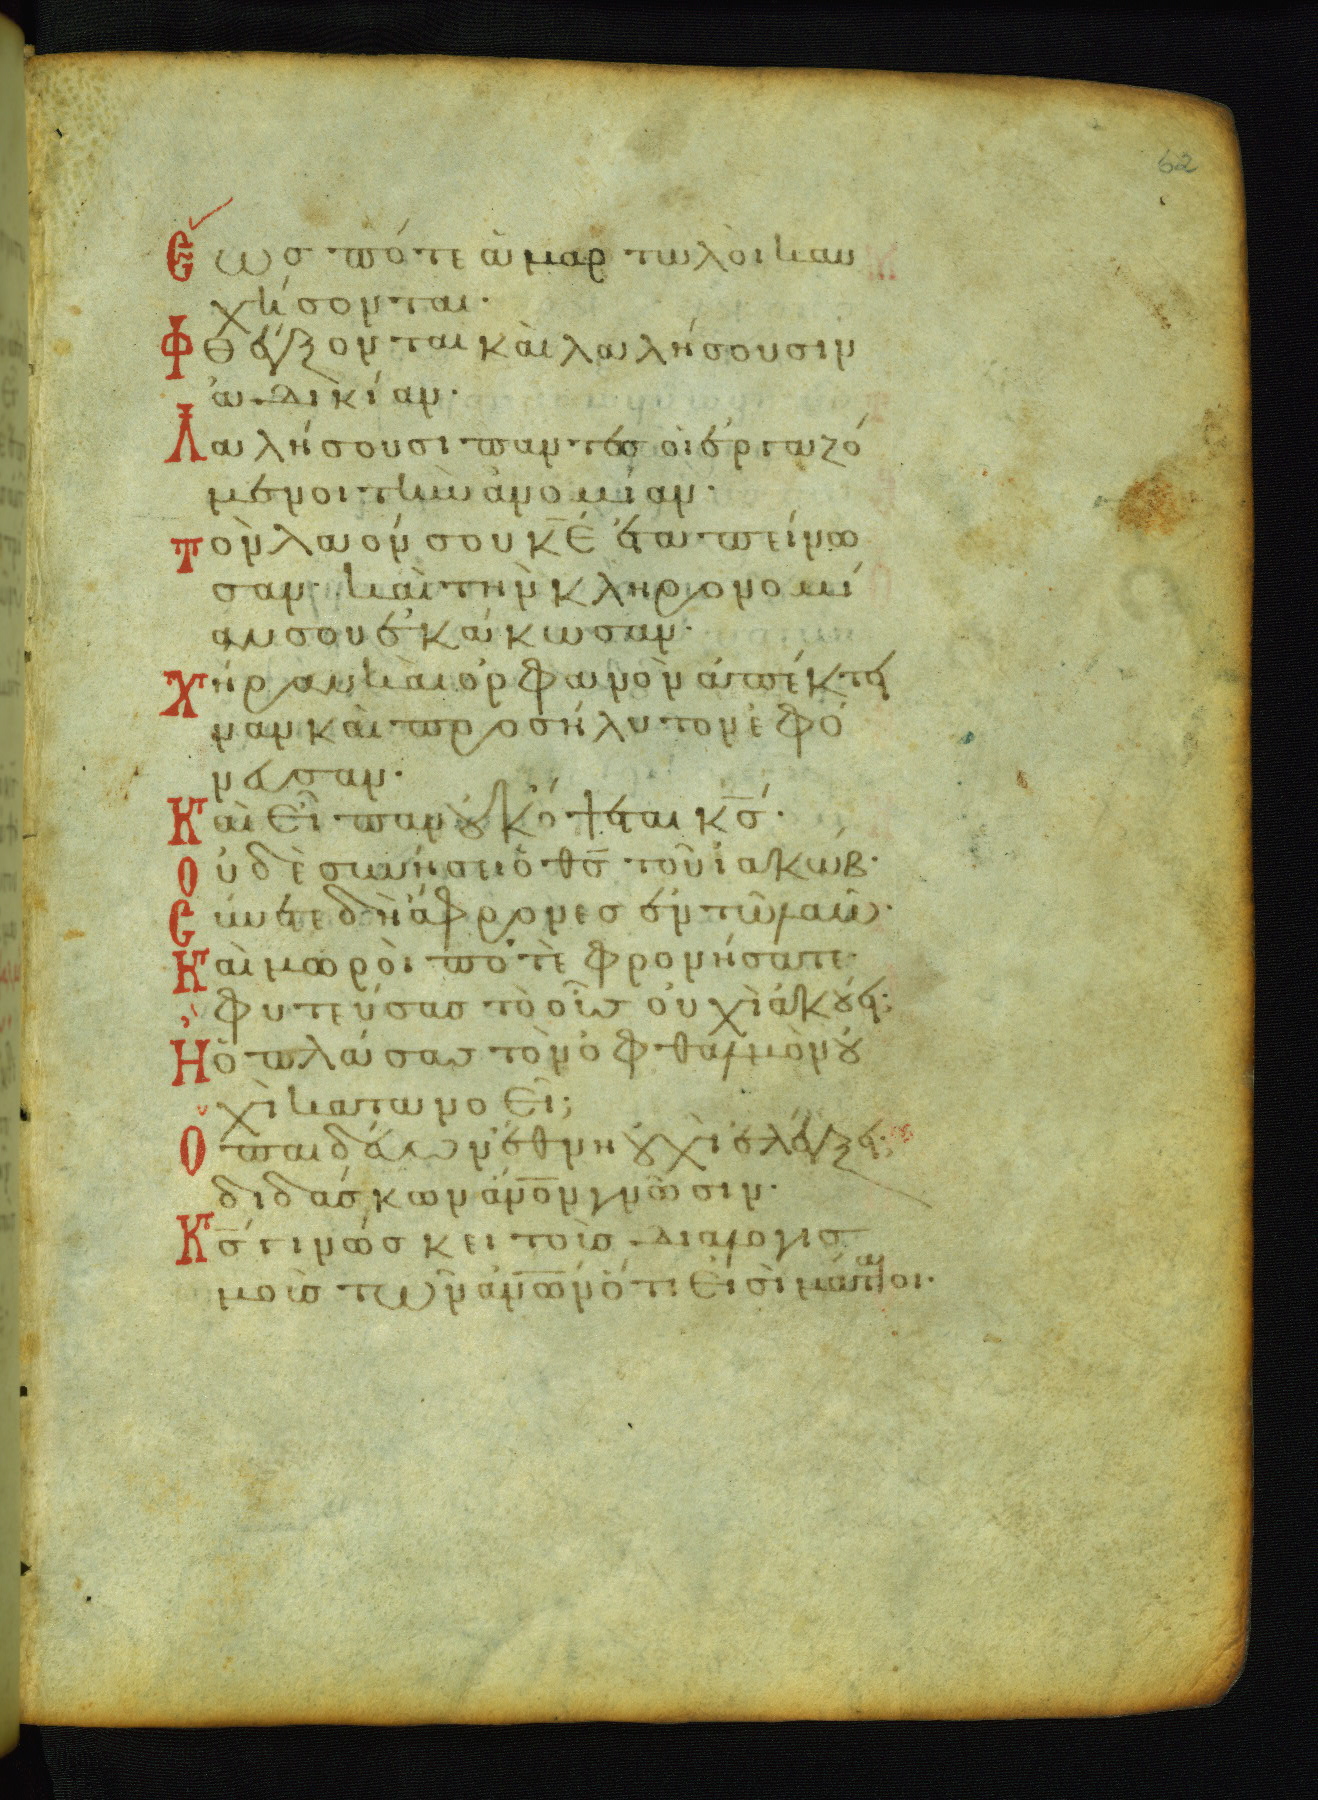 62
Ἕως πότε ἁμαρτωλοὶ καυ
χήσονται·
Φθέγξονται καὶ λαλήσουσιν
ἀδικίαν·
Λαλήσουσι πάντες οἱ ἐργαζό
μενοι τὴν ἀνομίαν·
Τὸν λαόν σου κ̅ε̅ ἐταπείνω
σαν· καὶ τὴν κληρονομί
αν σου ἐκάκωσαν·
Χήραν καὶ ὀρφανὸν ἀπέκτει
ναν καὶ προσήλυτον ἐφό
νευσαν·
Καὶ εἶπαν οὐκ ὄψεται κ̅ς̅·
Οὐδὲ συνήσει ὁ θ̅ς̅ τοῦ ἰακώβ·
Σύνετε δὴ ἄφρονες ἐν τῷ λαῷ·
Καὶ μωροὶ ποτὲ φρονήσατε·
Ὁ φυτεύσας τὸ οὖς οὐχὶ ἀκούει;
Ἢ ὁ πλάσας τὸν ὀφθαλμὸν οὐ
χὶ κατανοεῖ;
Ὁ παιδεύων ἔθνη οὐχὶ ἐλέγξει;
ὁ διδάσκων ἄν̅ο̅ν̅ γνῶσιν·
Κ̅ς̅ γινώσκει τοὺς διαλογισ
μοὺς τῶν ἀν̅ω̅ν̅ ὅτι εἰσὶ μάταιοι·